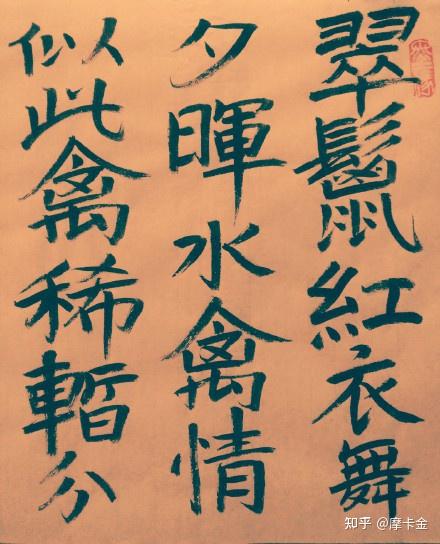 翠鬣紅衣舞
夕暉水禽情
似此禽稀暫分
知乎 @摩卡金